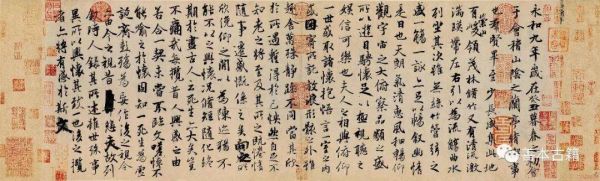 永和九年歲在癸丑暮春之初會
于會稽山陰之蘭亭脩稧事
也羣賢畢至少長咸集此地
有崇山峻領茂林脩竹又有清流激
湍暎帶左右引以為流觴曲水
列坐其次雖無絲竹管弦之
盛一觴一詠亦足以暢叙幽情
是日也天朗氣清惠風和暢仰
觀宇宙之大俯察品類之盛
所以遊目騁懷足以極視聽之
娛信可樂也夫人之相與俯仰
一世或取諸懷抱悟言一室之內
或因寄所託放浪形骸之外雖
趣舍萬殊靜躁不同當其欣
於所遇蹔得於己怏然自足不
知老之將至及其所之既惓情
隨事遷感慨係之矣向之所
欣俛仰之間以為陳迹猶不
能不以之興懷況脩短隨化終
期於盡古人云死生亦大矣豈
不痛哉每攬昔人興感之由
若合一契未嘗不臨文嗟悼不
能喻之於懷固知一死生為虛
誕齊彭殤為妄作後之視今
亦由今之視昔悲夫故列
叙時人錄其所述雖世殊事
異所以興懷其致一也後之攬
者亦將有感於斯文
善本古籍